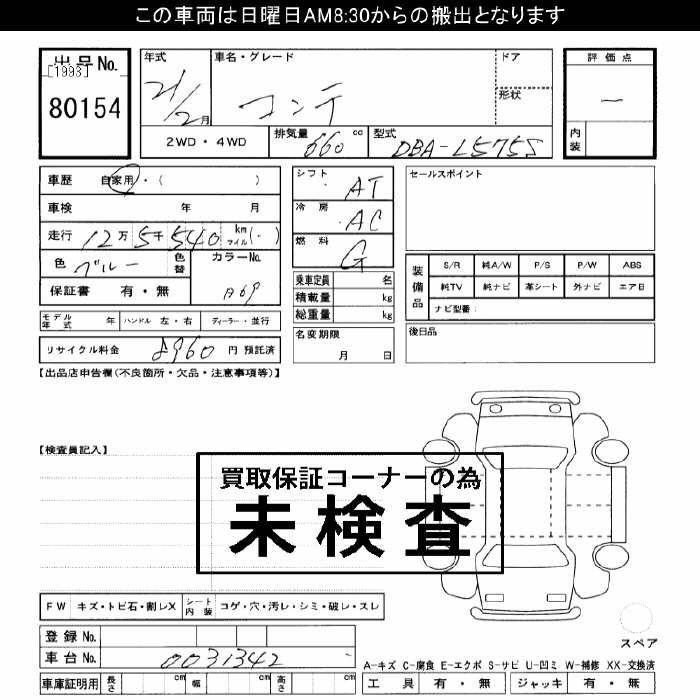 この車両は日曜日AM8:30からの搬出となります
出品No.
[1993]
80154
年式
21/2月
車名・グレード
コンテ
ドア
形状
2WD・4WD
排気量 660 cc
型式 DBA-L575S
評価点
一
内装
車歴 自家用・( )
車検 年 月
走行 12万5千540 km マイル(・)
色 ブルー 色替
カラーNo.
B69
保証書 有・無
シフト AT
冷房 AC
燃料 G
乗車定員 名
積載量 kg
総重量 kg
名変期限
月 日
セールスポイント
装備品
S/R 純A/W P/S P/W ABS
純TV 純ナビ 革シート 外ナビ エアB
ナビ型番:
後日品
モデル年式 年 ハンドル 左・右 ディーラー・並行
リサイクル料金 8960 円 預託済
【出品店申告欄(不良箇所・欠品・注意事項等)】
【検査員記入】
買取保証コーナーの為
未検査
FW キズ・トビ石・割レX シート内装 コゲ・穴・汚レ・シミ・破レ・スレ
登録No.
車台No. 0031342
車庫証明用 長さ cm 幅 cm 高さ cm
スペア
A-キズ C-腐食 E-エクボ S-サビ U-凹ミ W-補修 XX-交換済
工具 有・無 ジャッキ 有・無